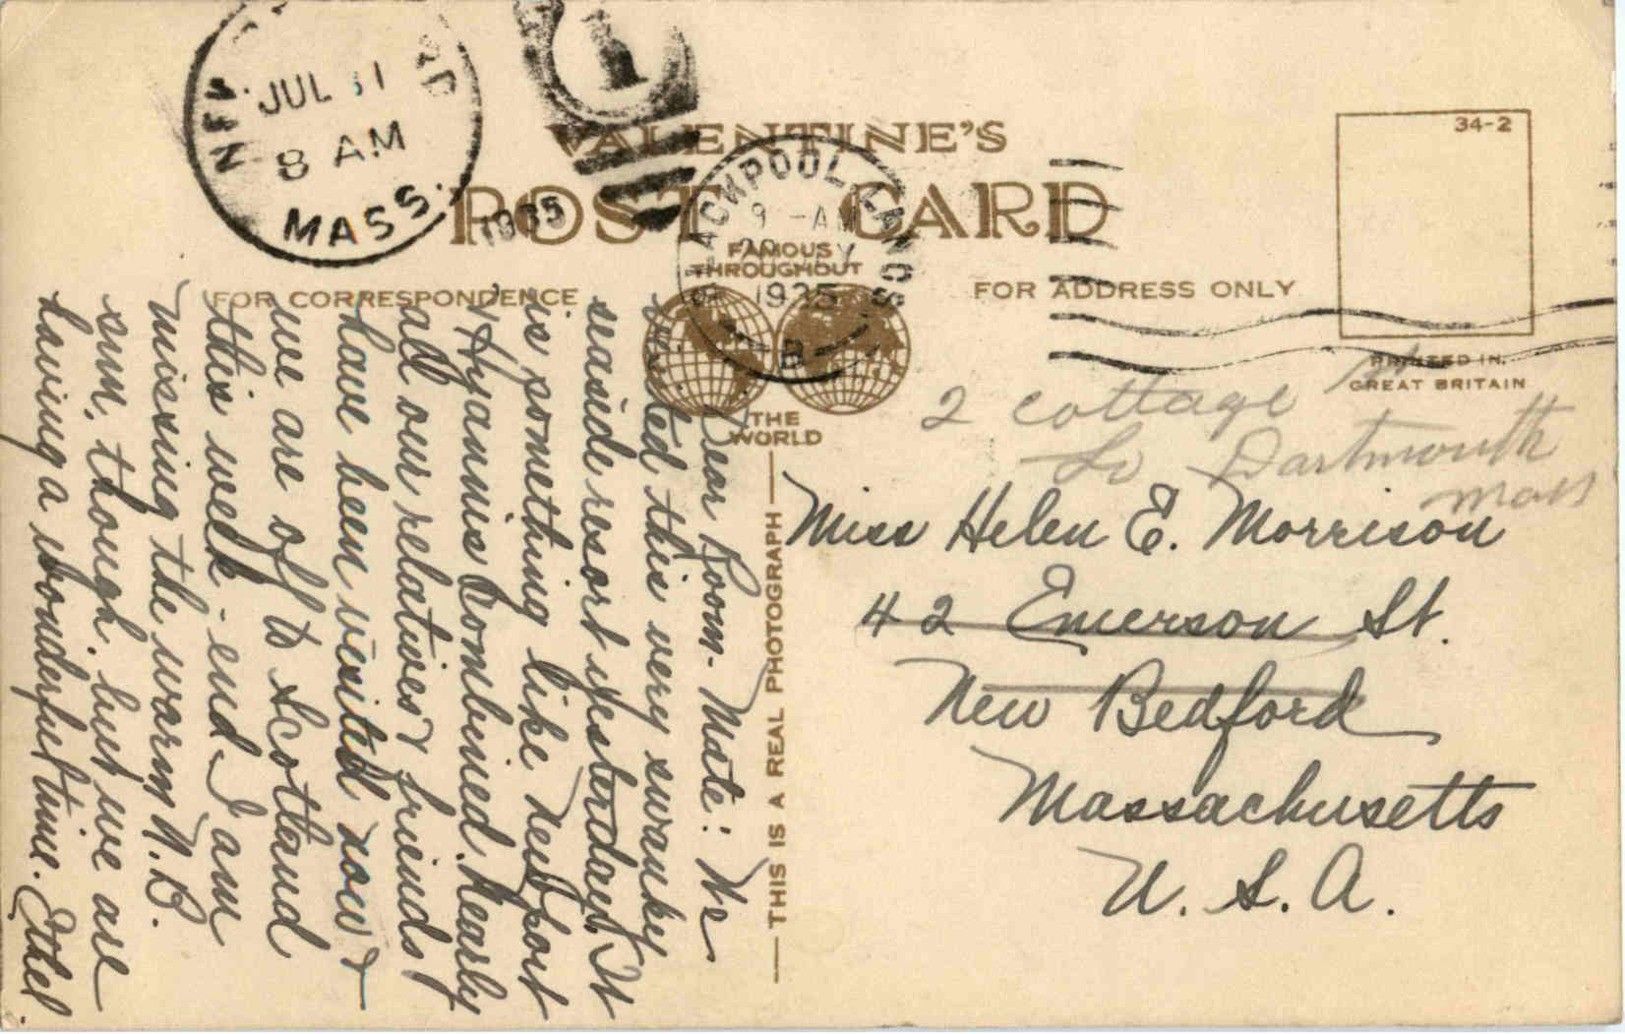 JUL 31
8 AM
MASS.
1935
1
VALENTINE'S
POST CARD
BLACKPOOL LANCS
9 - AM
1935
B
FAMOUS
THROUGHOUT
THE
WORLD
FOR CORRESPONDENCE
FOR ADDRESS ONLY
34-2
PRINTED IN
GREAT BRITAIN
THIS IS A REAL PHOTOGRAPH
Dear Room-Mate: We
visited this very swanky
seaside resort yesterday. It
is something like Newport
& Hyannis combined. Nearly
all our relatives & friends
have been visited now &
we are off to Scotland
this week-end. I am
missing the warm N.B.
sun, though, but we are
having a wonderful time. Ethel.
2 cottage
So Dartmouth
Mass
Miss Helen E. Morrison
42 Emerson St.
New Bedford
Massachusetts
U. S. A.